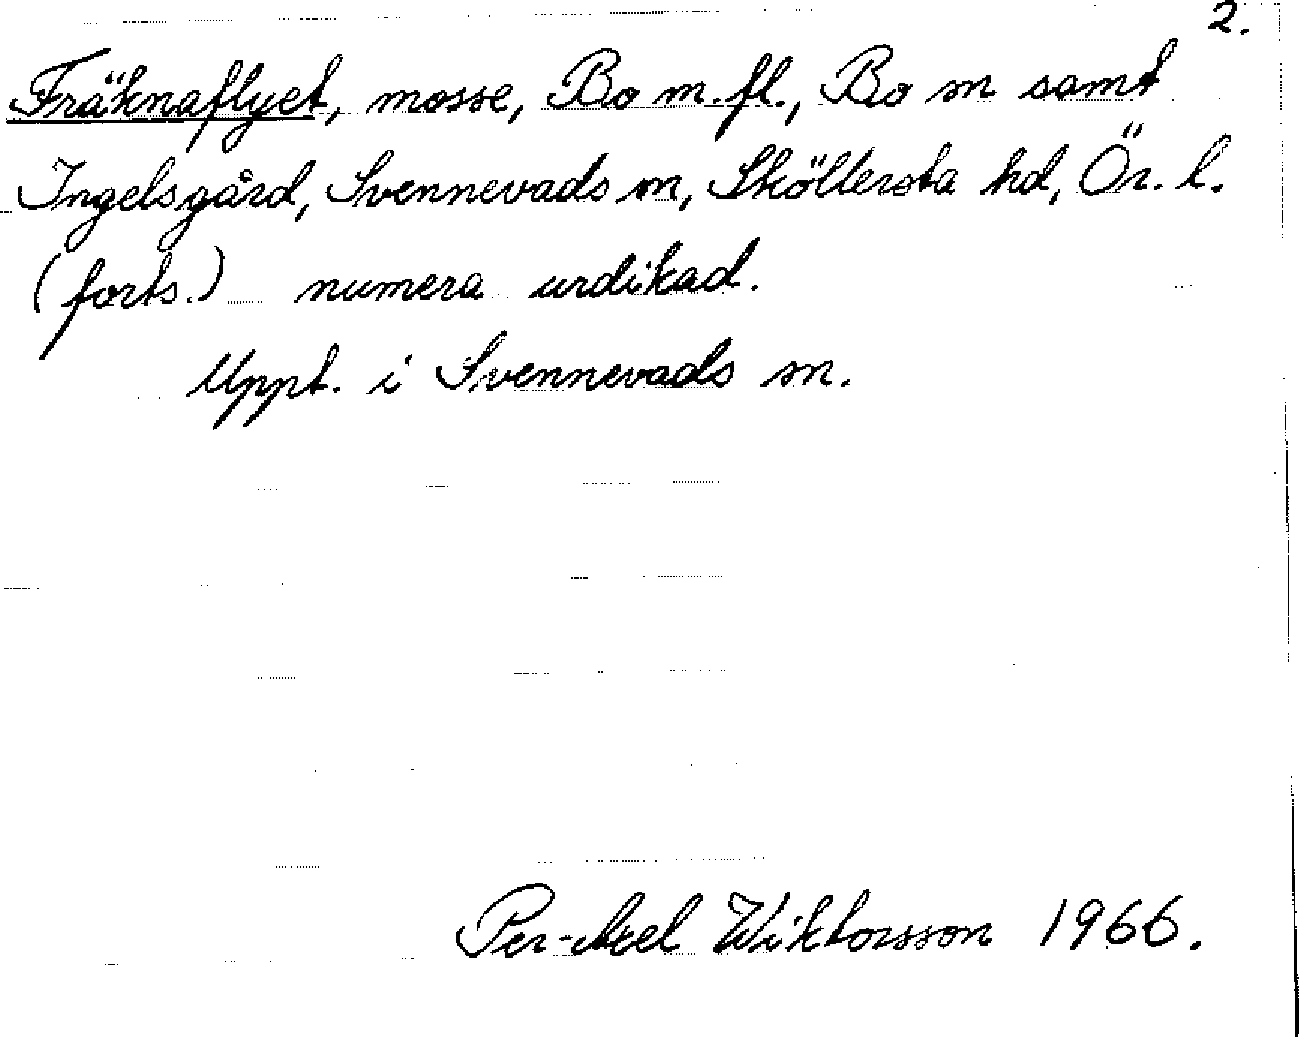 2.
Fräknaflyet, mosse, Bo m.fl., Bo sn samt
Ingelsgård, Svennevads sn, Sköllersta hd, Ör. l.
(forts.) numera urdikad.
Uppt. i Svennevads sn.
Per-Axel Wiktorsson 1966.